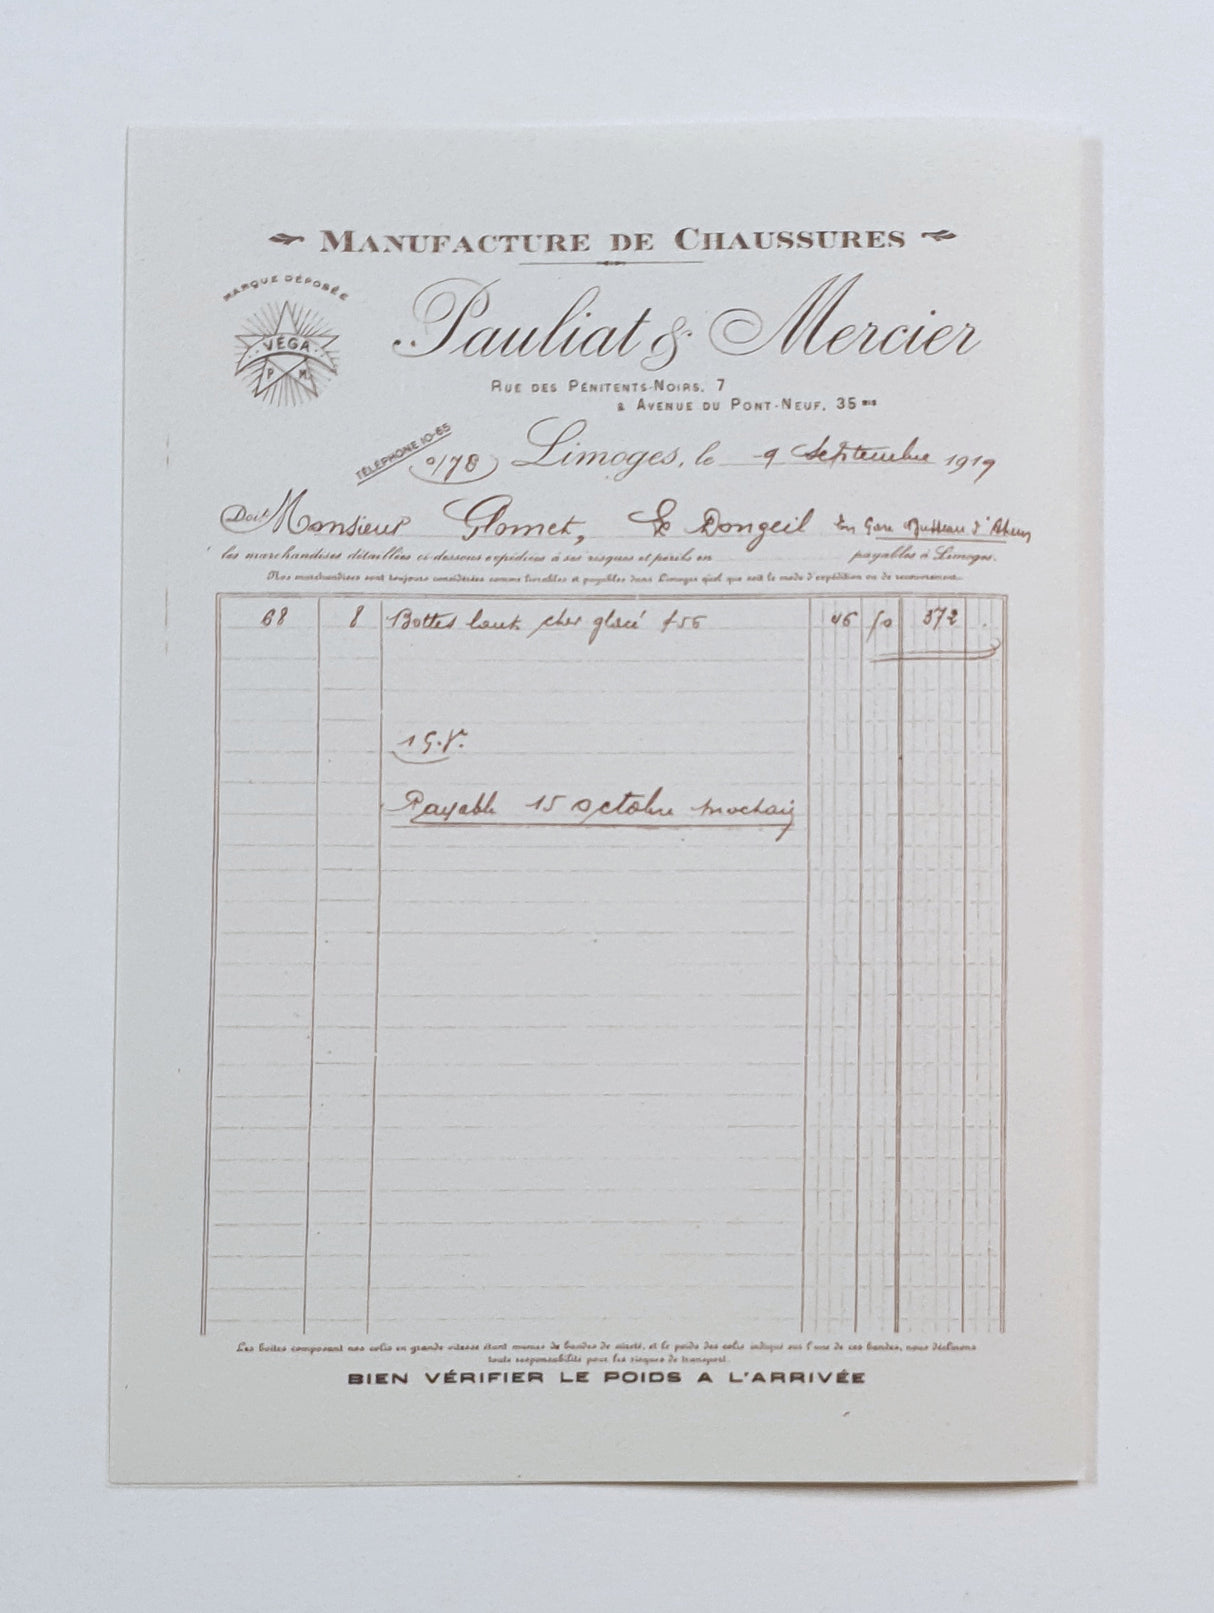 MANUFACTURE DE CHAUSSURES
MARQUE DÉPOSÉE
VÉGA
P M
Pauliat & Mercier
RUE DES PÉNITENTS-NOIRS, 7
& AVENUE DU PONT-NEUF, 35 BIS
TÉLÉPHONE 10-65
Limoges, le 9 Septembre 1919
Doit Monsieur Glomet, Le Dongeil En Gare Busseau d'Ahun
les marchandises détaillées ci-dessous expédiées à ses risques et périls en payables à Limoges.
Nos marchandises sont toujours considérées comme livrables et payables dans Limoges quel que soit le mode d'expédition ou de recouvrement.
68 8 Bottes chev glacé 46 50 372
1 G.V.
Payable 15 octobre prochain
Les boîtes composant nos colis en grande vitesse étant munies de bandes de sûreté, et le poids des colis indiqué sur l'une de ces bandes, nous déclinons
toute responsabilité pour les risques de transport.
BIEN VÉRIFIER LE POIDS A L'ARRIVÉE